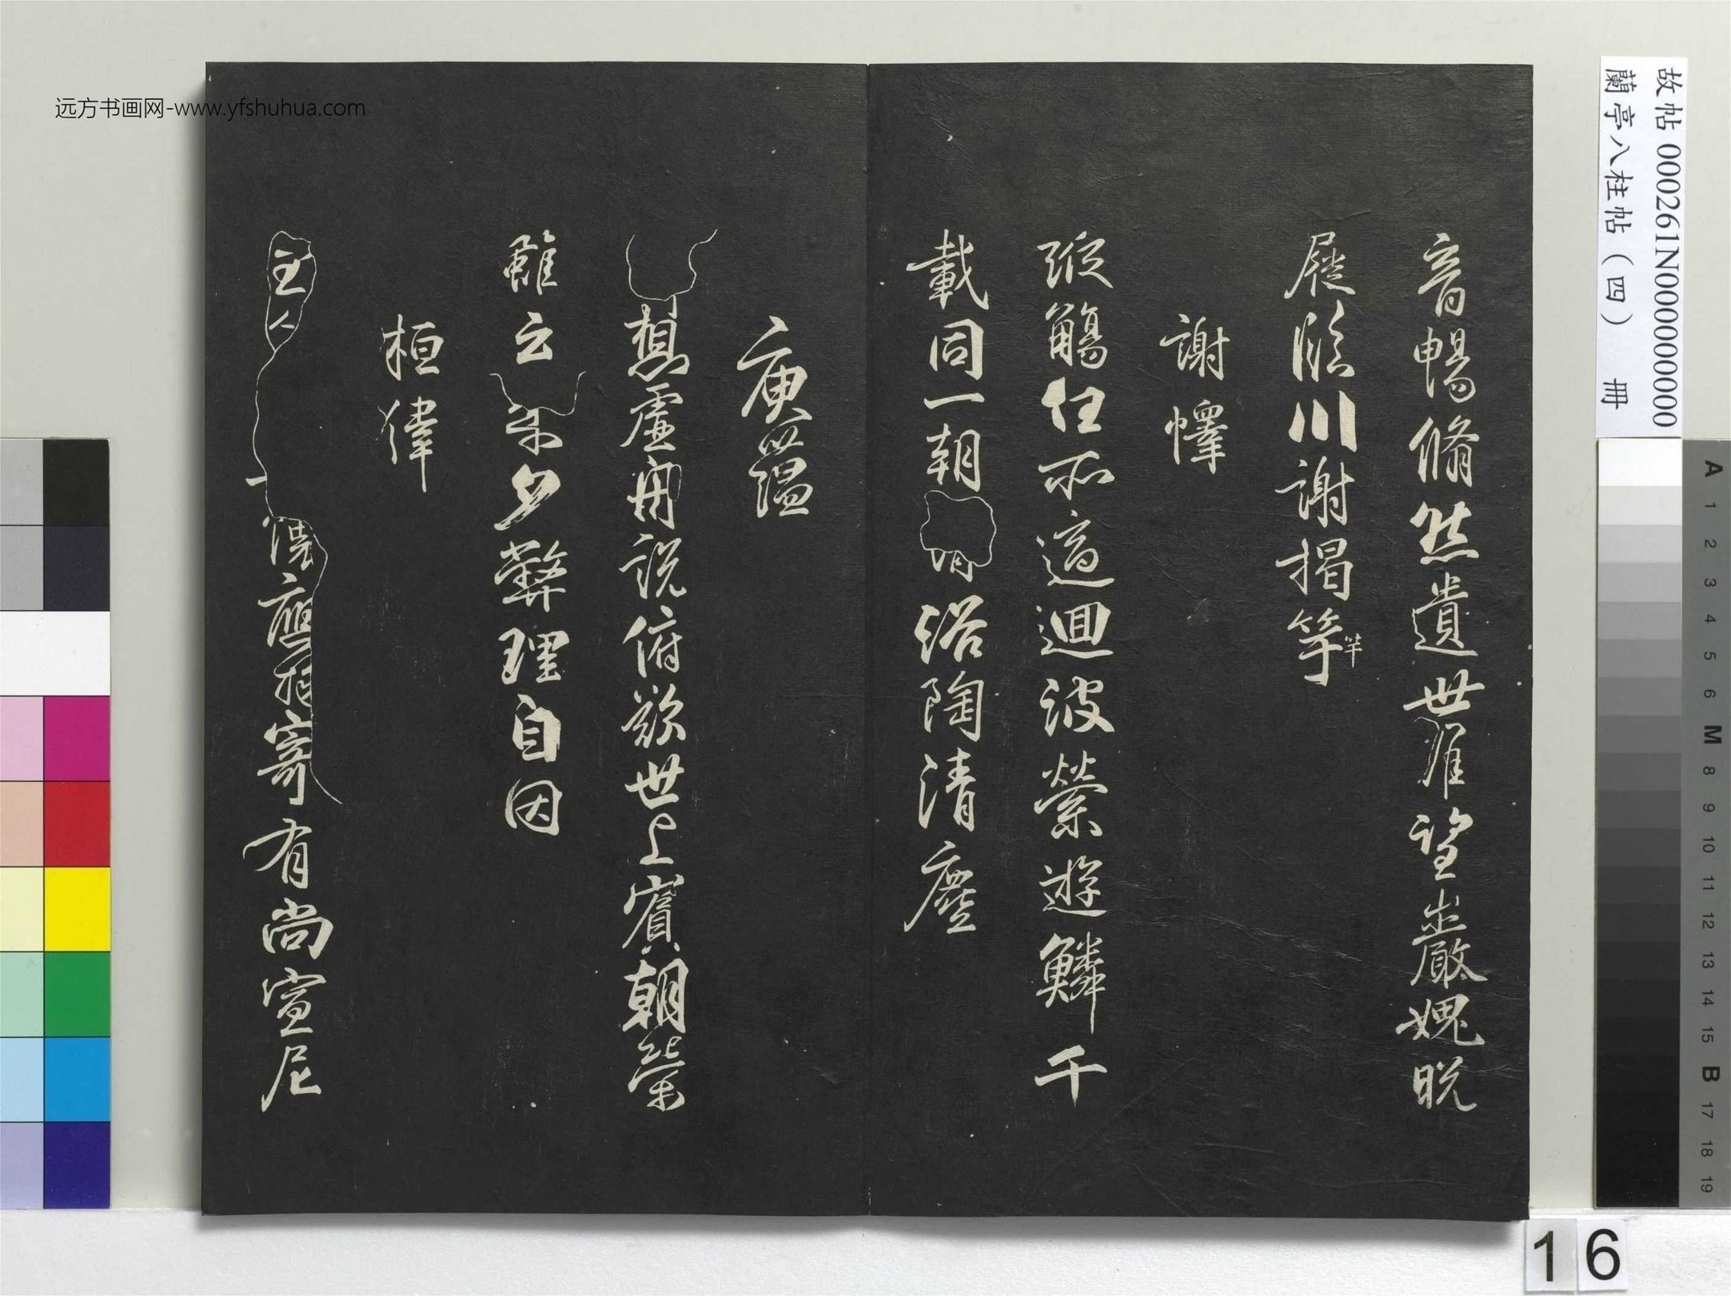 故帖 000261N000000000
蘭亭八柱帖（四） 冊
远方书画网-www.yfshuhua.com
音暢翛然遺世望巖愧脫
屣臨川謝揭竿竿
謝懌
縱觴任所適迴波縈遊鱗千
載同一朝浴陶清塵
庾蘊
想虛舟說俯歎世上賓朝榮
雖云樂夕弊理自因
桓偉
主人懷應物寄有尚宣尼
A 1 2 3 4 5 6 M 8 9 10 11 12 13 14 15 B 17 18 19
16